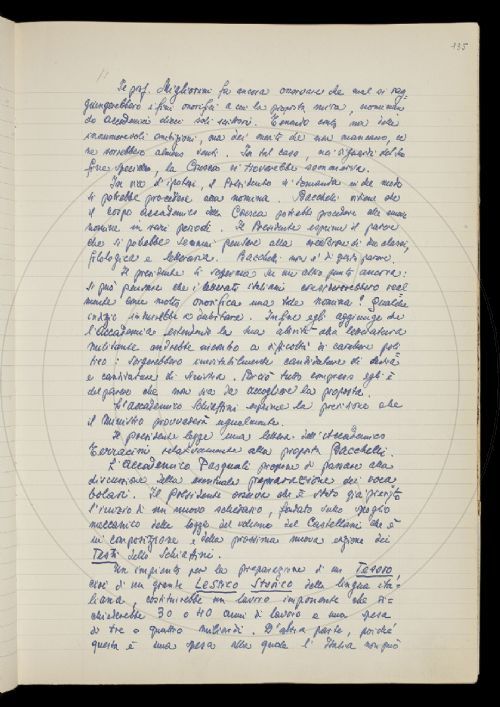 135
Il prof. Migliorini fa ancora osservare che mal si rag-
giungerebbero i fini onorifici a cui la proposta mira, nominan
do accademici dieci soli scrittori. Tenendo conto non solo
innumerevoli ambizioni, ma dei meriti che non mancano, ce
ne vorrebbero almeno venti. In tal caso, nei riguardi del
fine specifico, la Crusca si troverebbe
In via d'ipotesi, il Presidente si domanda in che modo
si potrebbe procedere alla nomina. Bacchelli ritiene che
il corpo accademico della Crusca potrebbe procedere alle
nomine in vari periodi. Il Presidente esprime il parere
che si potrebbe semmai pensare alla di due classi,
filologica e letteraria. Bacchelli non è di questo parere.
Il presidente si sofferma su un altro punto ancora:
si può pensare che i letterati italiani considererebbero real
mente come molto onorifica una tale nomina? Qualche
indizio indurrebbe a dubitare. Infine egli aggiunge che
l'Accademia estendendo la sua attività alla letteratura
militante andrebbe incontro a difficoltà di carattere poli
tico: sorgerebbero inevitabilmente candidature di destra
e candidature di sinistra. Perciò tutto compreso egli è
del parere che non sia da accogliere la proposta.
L'accademico Schiaffini esprime la previsione che
il Ministro provvederà ugualmente.
Il presidente legge una lettera dell'Accademico
Terracini relativamente alla proposta Bacchelli.
L'Accademico Pasquali propone di passare alla
discussione della eventuale preparazione dei voca
bolari. Il Presidente osserva che è stato già previsto
l'inizio di un nuovo schedario, fondato sullo spoglio
meccanico delle legge del volume del Castellani che è
in composizione e della prossima nuova edizione dei
Testi dello Schiaffini.
Un impianto per la preparazione di un Tesoro,
cioè di un grande Lessico Storico della lingua ita-
liana, costituirebbe un lavoro imponente che ri-
chiederebbe 30 o 40 anni di lavoro e una spesa
di tre o quattro miliardi. D'altra parte, poiché
questa è una spesa alla quale l'Italia non può